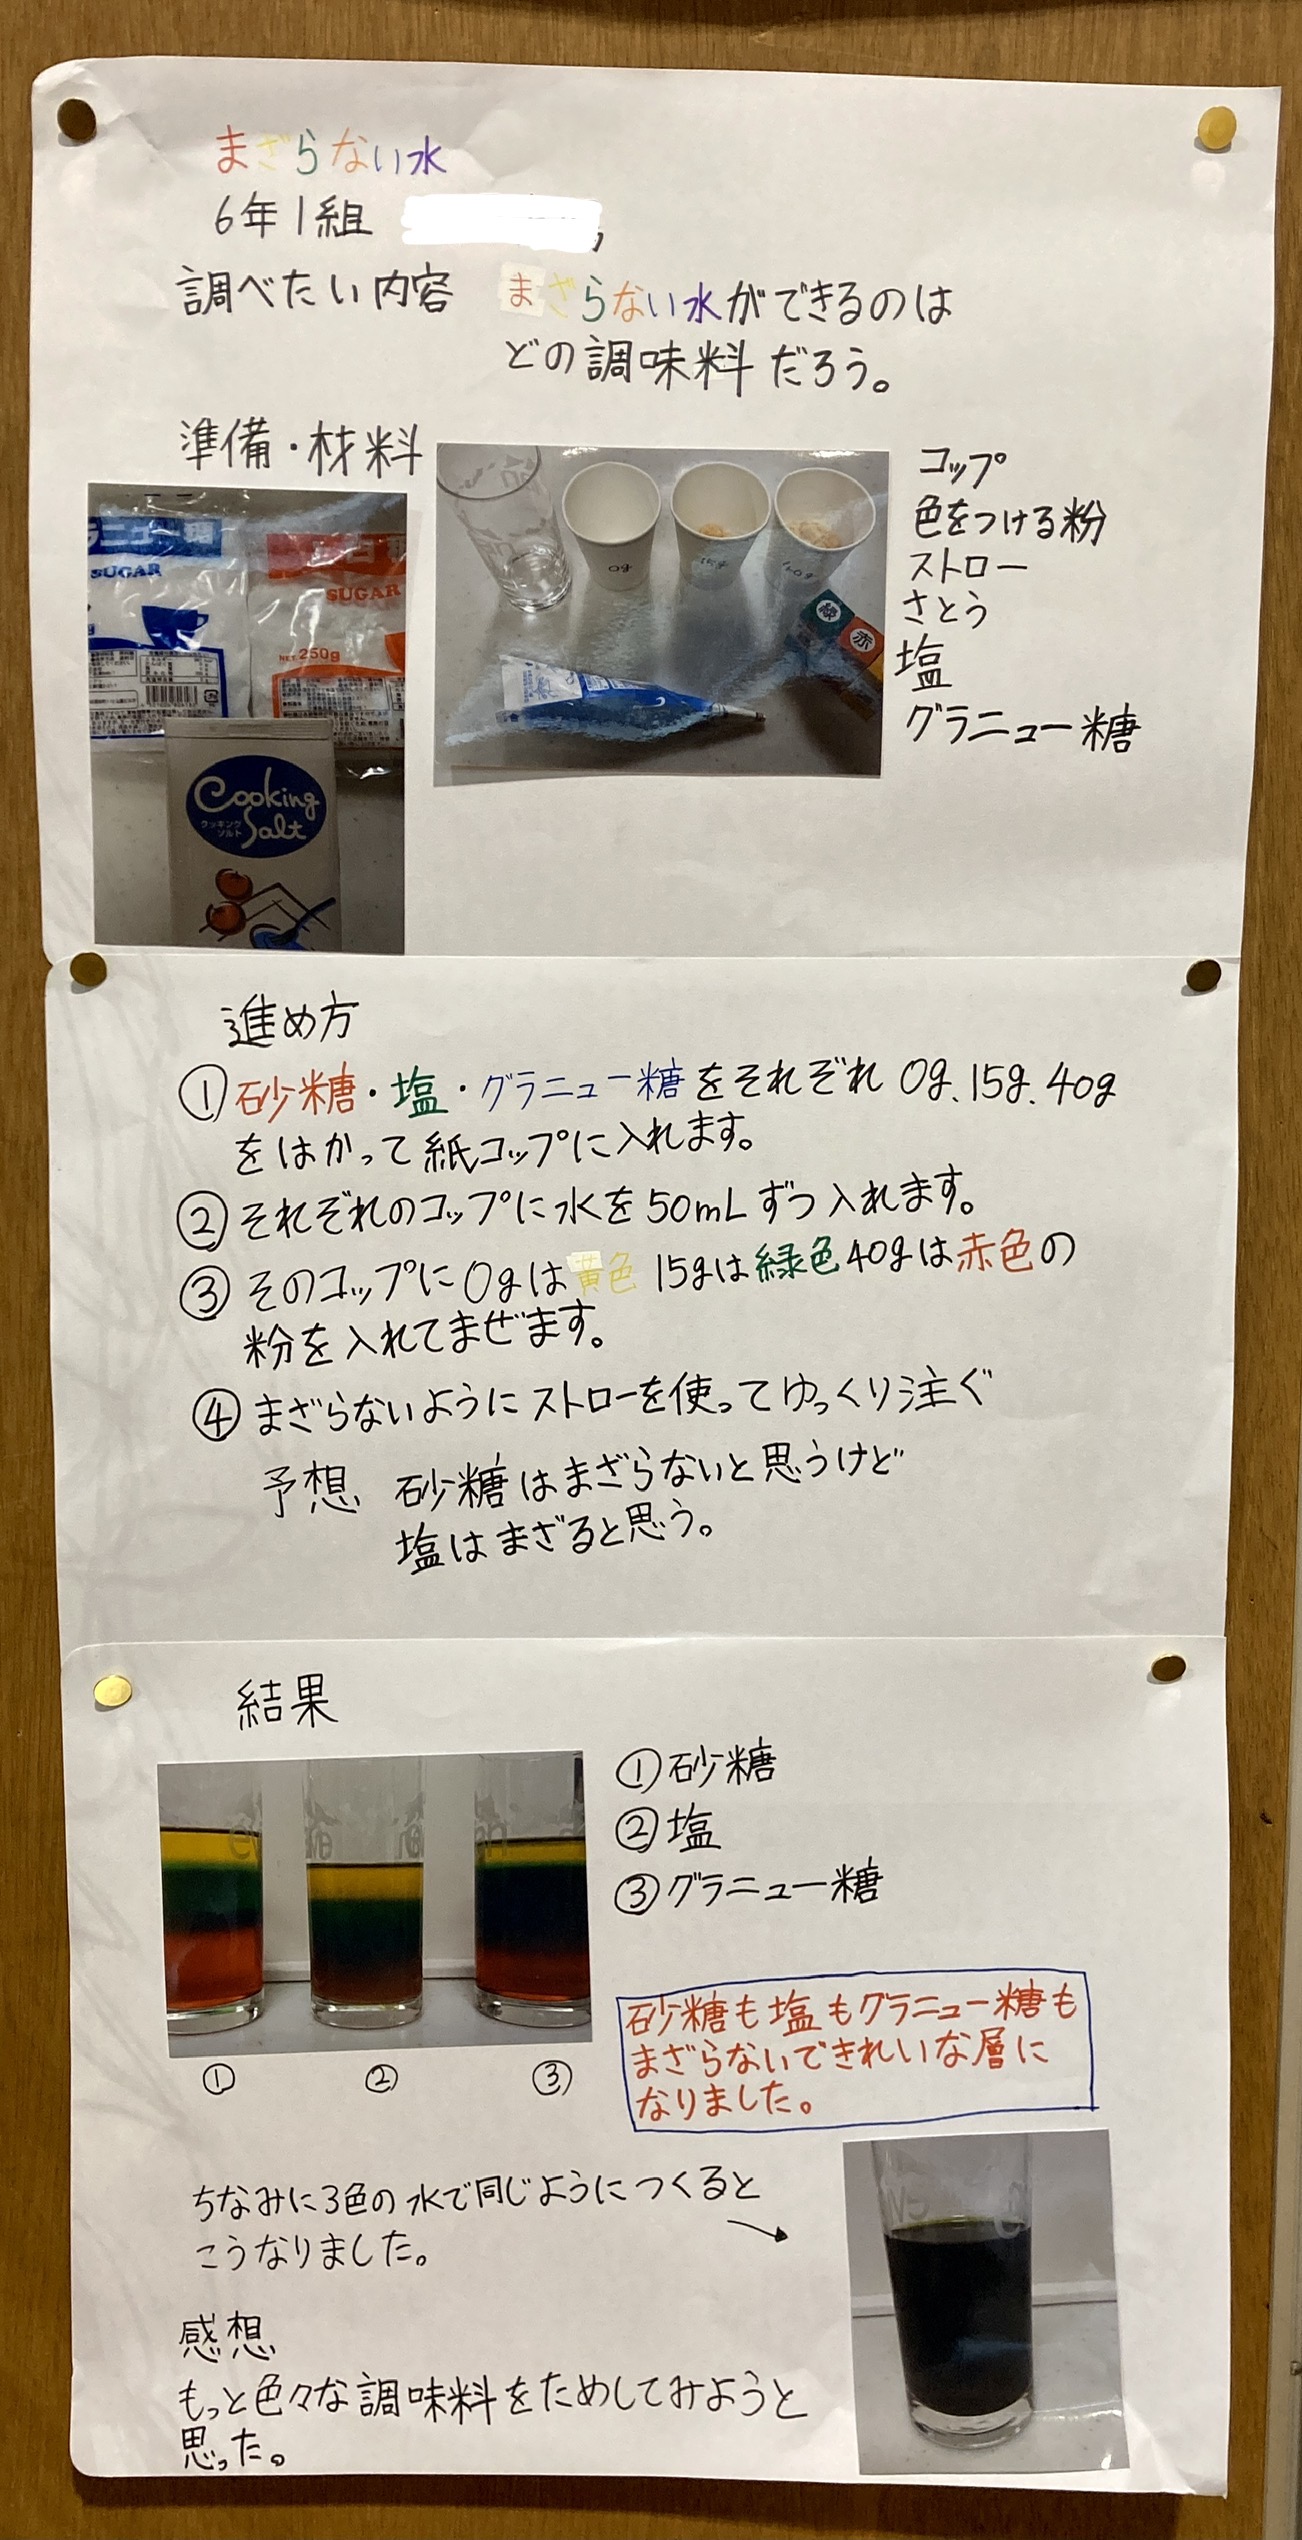 まざらない水
6年1組
調べたい内容 まざらない水ができるのは
どの調味料だろう。
準備・材料
SUGAR
SUGAR
NET 250g
Cooking
Salt
クッキング
ソルト
0g
15g
緑
赤
コップ
色をつける粉
ストロー
さとう
塩
グラニュー糖
進め方
①砂糖・塩・グラニュー糖をそれぞれ0g、15g、40g
をはかって紙コップに入れます。
②それぞれのコップに水を50mLずつ入れます。
③そのコップに0gは黄色 15gは緑色40gは赤色の
粉を入れてまぜます。
④まざらないようにストローを使ってゆっくり注ぐ
予想 砂糖はまざらないと思うけど
塩はまざると思う。
結果
①砂糖
②塩
③グラニュー糖
① ② ③
砂糖も塩もグラニュー糖も
まざらないできれいな層に
なりました。
ちなみに3色の水で同じようにつくると
こうなりました。
感想
もっと色々な調味料をためしてみようと
思った。